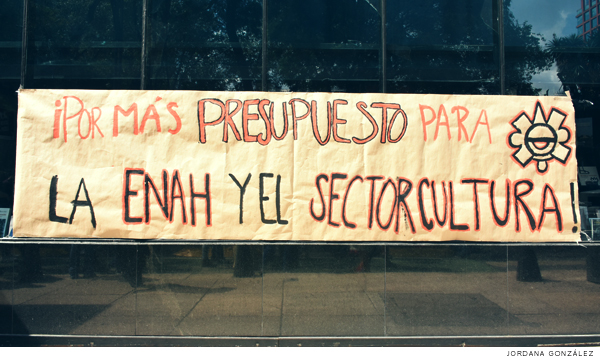 ¡POR MÁS PRESUPUESTO PARA
LA ENAH Y EL SECTOR CULTURA!
JORDANA GONZÁLEZ